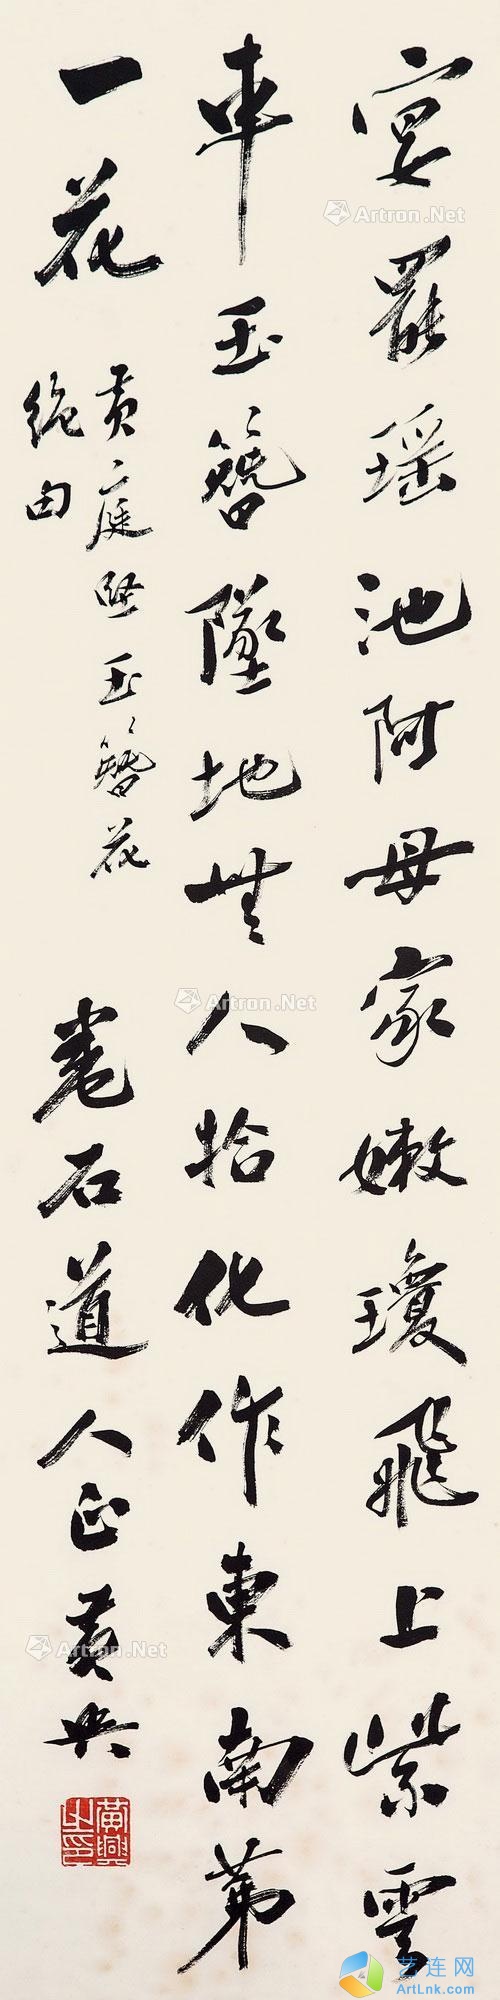 宴罷瑶池阿母家嫩瓊飛上紫雲
車玉簪墜地無人拾化作東南第
一花
黄庭堅玉簪花
絶句
石道人正 黄興
黃興之印
Artron.Net
Artron.Net
Artron.Net
艺连网
ArtLnk.com